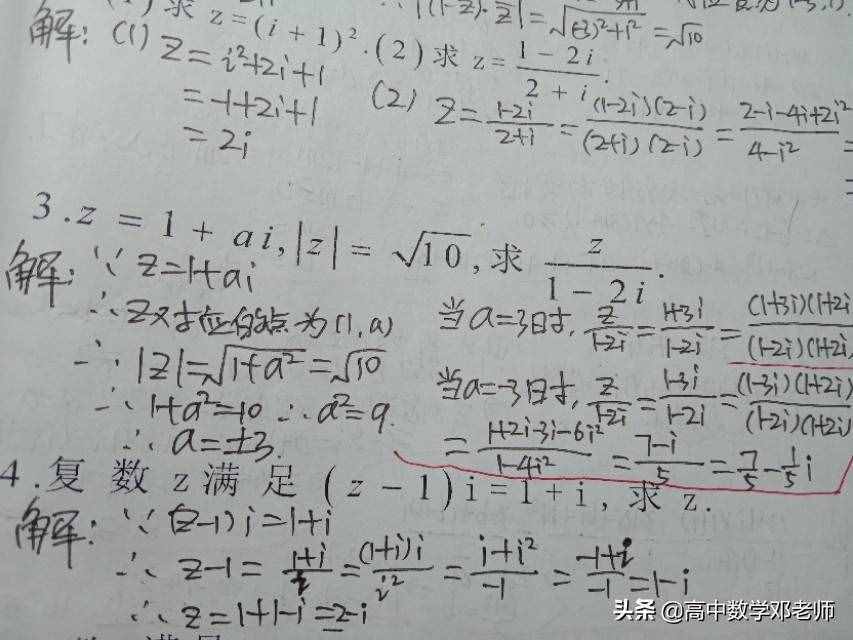 求 z=(i+1)².(2)求 z=\frac{1-2i}{2+i}.
|(1-z)·\overline{z}|=\sqrt{(-3)²+1²}=\sqrt{10}
解:(1) z=i²+2i+1
=-1+2i+1
=2i
(2) z=\frac{1-2i}{2+i}=\frac{(1-2i)(2-i)}{(2+i)(2-i)}=\frac{2-i-4i+2i²}{4-i²}=
=
3.z=1+ai,|z|=\sqrt{10},求\frac{z}{1-2i}.
解:∵z=1+ai
∴z对应的点为(1,a)
∴|z|=\sqrt{1+a²}=\sqrt{10}
∴1+a²=10 ∴a²=9.
∴a=±3.
当a=3时,\frac{z}{1-2i}=\frac{1+3i}{1-2i}=\frac{(1+3i)(1+2i}{(1-2i)(1+2i)
当a=-3时,\frac{z}{1-2i}=\frac{1-3i}{1-2i}=\frac{(1-3i)(1+2i)}{(1-2i)(1+2i)}
=\frac{1+2i-3i-6i²}{1-4i²}=\frac{7-i}{5}=\frac{7}{5}-\frac{1}{5}i
4.复数z满足(z-1)i=1+i,求z.
解:∵(z-1)i=1+i
∴z-1=\frac{1+i}{i}=\frac{(1+i)i}{i²}=\frac{i+i²}{-1}=\frac{-1+i}{-1}=1-i
∴z=1+1-i=2-i
头条 @高中数学邓老师